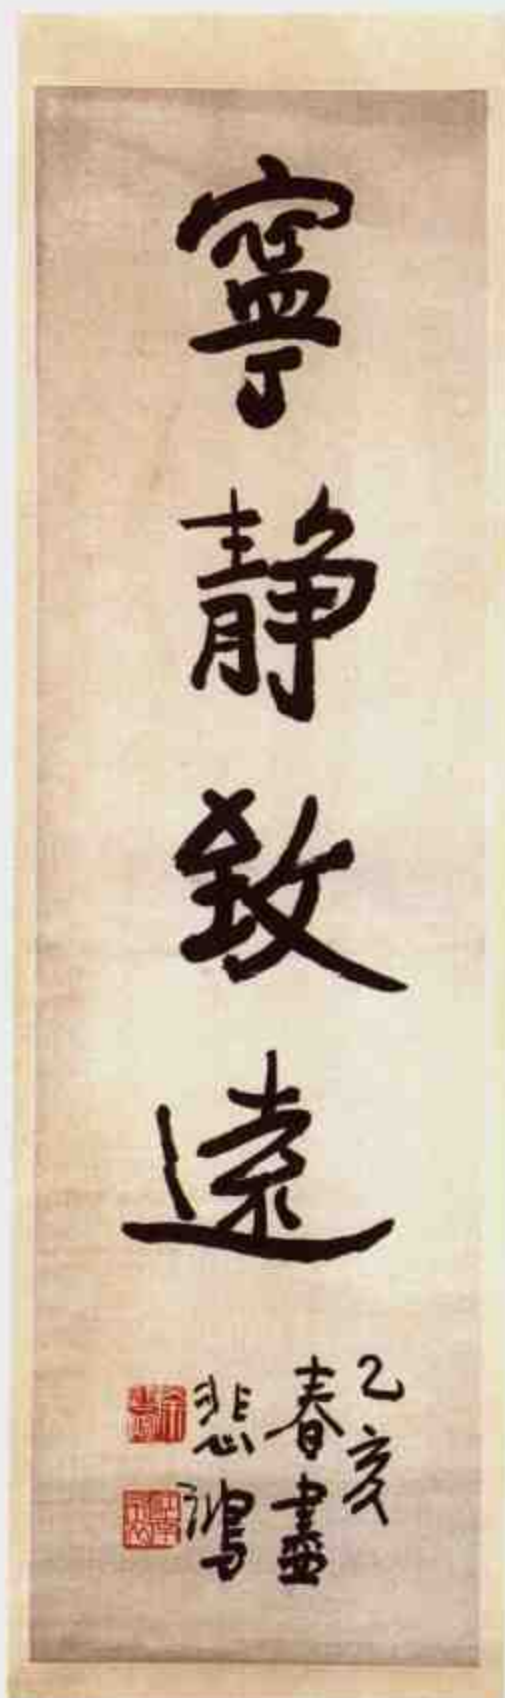 寧靜致遠
乙亥
春盡
悲鴻